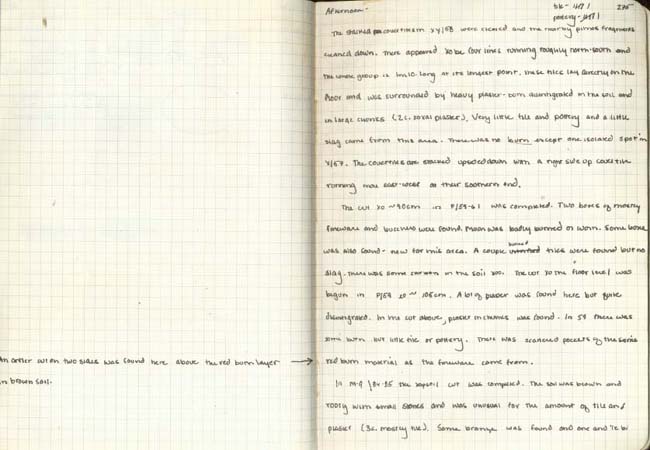 Afternoon-
275
The stacked pan covertiles in XY/58 were cleaned and the nearby pinnae fragments
cleaned down. There appeared to be four lines running roughly north-south and
the whole group is 1m10 long at its longest point. These tiles lay directly on the
floor and was surrounded by heavy plaster- both disintegrated in the soil and
in large chunks (2c. total plaster). Very little tile and pottery and a little
slag came from this area. There was no burn except one isolated spot in
Y/57. The covertiles are stacked upside down with a right side up cover tile
running more east-west at their southern end.
The cut to ~90cm in P/59-61 was completed. Two boxes of mostly
fineware and bucchero were found. Much was badly burned or worn. Some bone
was also found- new for this area. A couple burned tiles were found but no
slag. There was some carbon in the soil too. The cut to the floor level was
begun in P/59 to ~105cm. A lot of plaster was found here but quite
disintegrated. In the cut above, plaster in chunks was found. In 59 there was
some burn but little tile or pottery. There was scattered pockets of the same
An antler cut on two sides was found here above the red burn layer → red burn material as the fineware came from.
in brown soil.
In the topsoil cut was completed. The soil was brown and
rooty with small stones and was unusual for the amount of tile and
plaster (3c. mostly tile). Some bronze was found and one